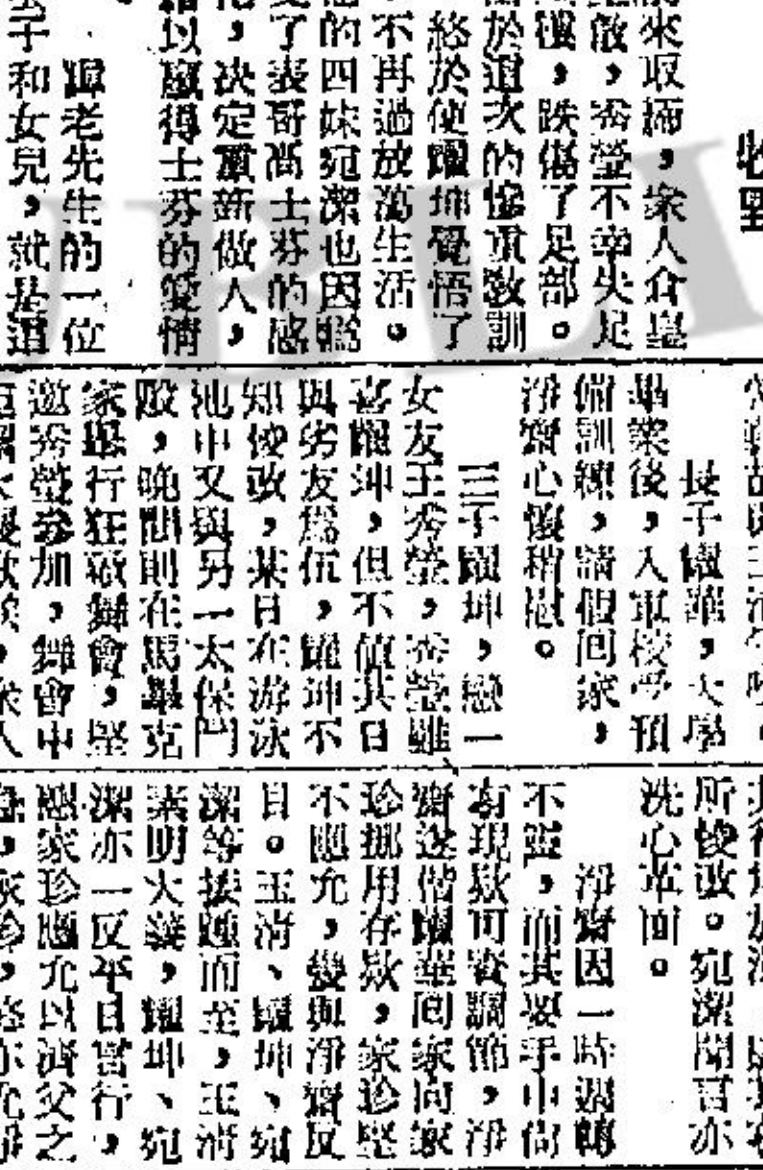 來取締，衆人倉皇
散，秀瑩不幸失足
，跌傷了足部。
於這次的慘重敎訓
終於使耀坤覺悟了
不再過放蕩生活。
的四妹宛潔也因爲
了表哥高士芬的感
，决定重新做人，
以贏得士芬的愛情
老先生的一位
子和女兒，就是這
長子耀華，大學
畢業後，入軍校受預
備訓練，請假回家，
淨齋心懷稍慰。
三子耀坤，戀一
女友王秀瑩，秀瑩雖
喜耀坤，但不値其日
與劣友爲伍，耀坤不
知悛改，某日在游泳
池中又與另一太保鬥
毆，晚間則在馬畢克
家舉行狂歡舞會，堅
邀秀瑩參加，舞會中
所悛改。宛潔聞言亦
洗心革面。
淨齋因一時週轉
不靈，而其妻手中尙
有現款可資調節，淨
齋遂偕耀華回家向家
珍挪用存款，家珍堅
不應允，幾與淨齋反
目。玉清、耀坤、宛
潔等接踵而至，玉清
素明大義，耀坤、宛
潔亦一反平日言行，
懇家珍應允以濟父之